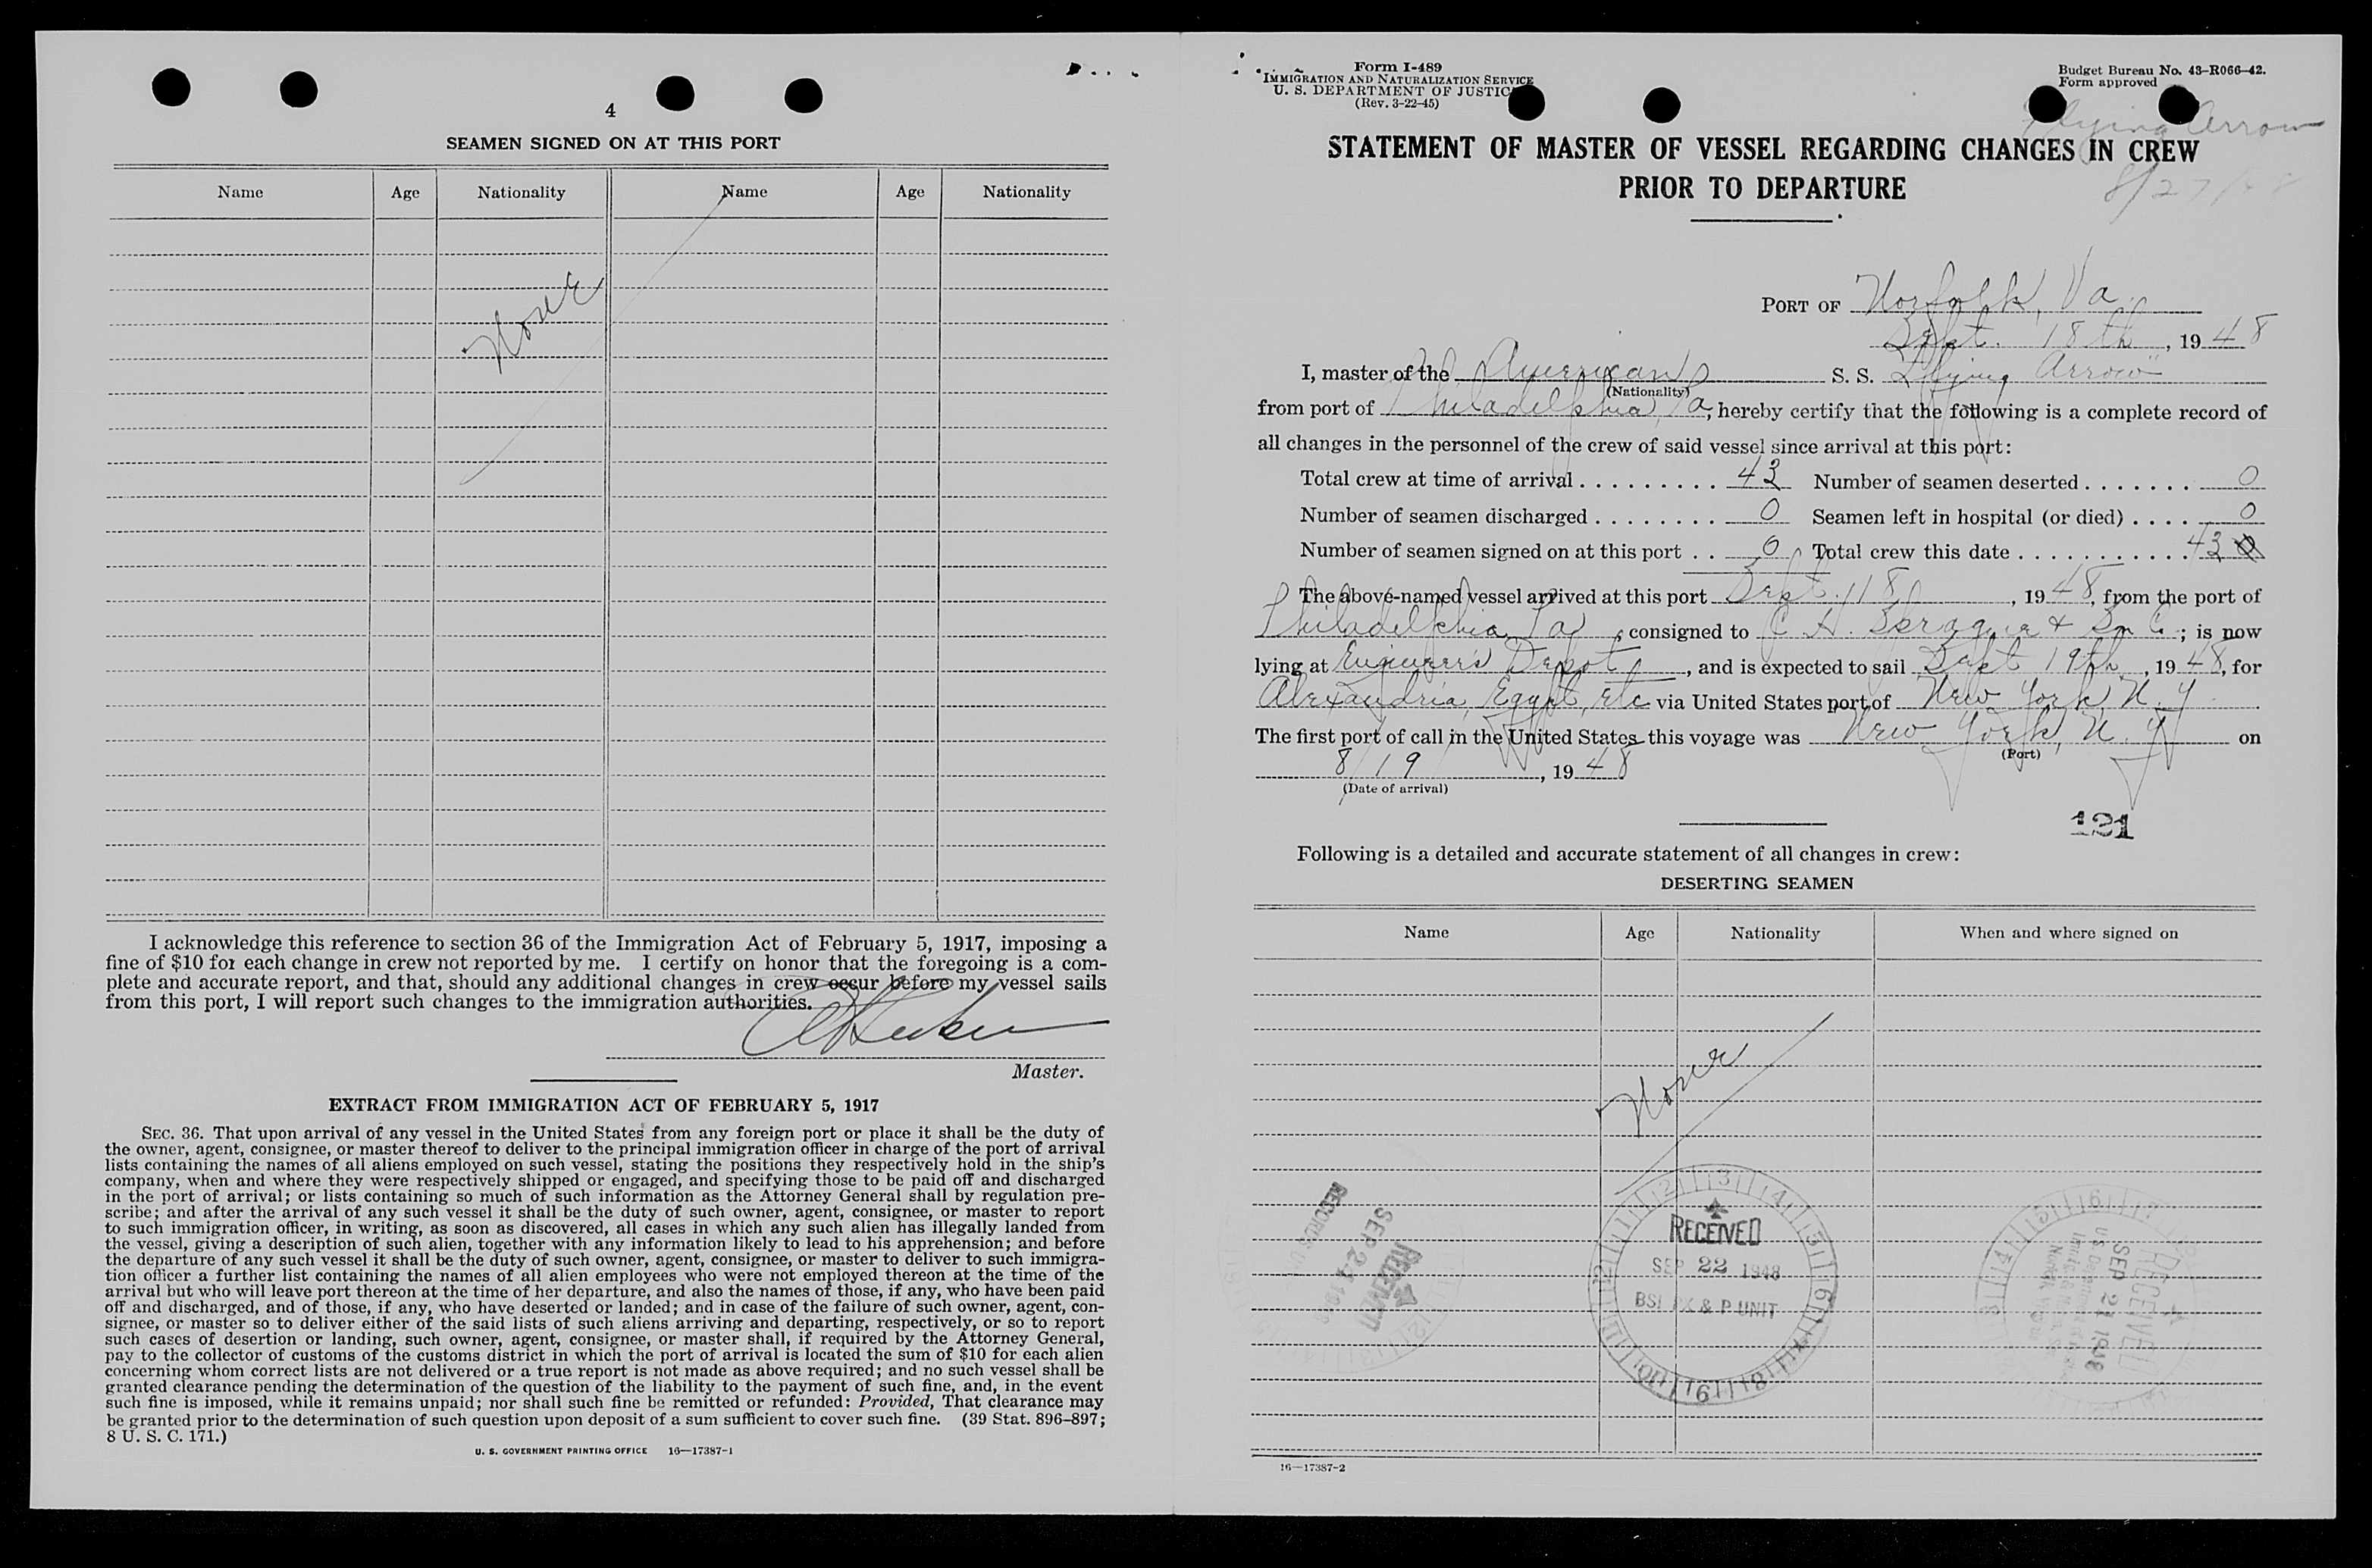 4
SEAMEN SIGNED ON AT THIS PORT
Name Age Nationality Name Age Nationality
None
I acknowledge this reference to section 36 of the Immigration Act of February 5, 1917, imposing a
fine of $10 for each change in crew not reported by me. I certify on honor that the foregoing is a com-
plete and accurate report, and that, should any additional changes in crew occur before my vessel sails
from this port, I will report such changes to the immigration authorities.
Master.
EXTRACT FROM IMMIGRATION ACT OF FEBRUARY 5, 1917
SEC. 36. That upon arrival of any vessel in the United States from any foreign port or place it shall be the duty of
the owner, agent, consignee, or master thereof to deliver to the principal immigration officer in charge of the port of arrival
lists containing the names of all aliens employed on such vessel, stating the positions they respectively hold in the ship's
company, when and where they were respectively shipped or engaged, and specifying those to be paid off and discharged
in the port of arrival; or lists containing so much of such information as the Attorney General shall by regulation pre-
scribe; and after the arrival of any such vessel it shall be the duty of such owner, agent, consignee, or master to report
to such immigration officer, in writing, as soon as discovered, all cases in which any such alien has illegally landed from
the vessel, giving a description of such alien, together with any information likely to lead to his apprehension; and before
the departure of any such vessel it shall be the duty of such owner, agent, consignee, or master to deliver to such immigra-
tion officer a further list containing the names of all alien employees who were not employed thereon at the time of the
arrival but who will leave port thereon at the time of her departure, and also the names of those, if any, who have been paid
off and discharged, and of those, if any, who have deserted or landed; and in case of the failure of such owner, agent, con-
signee, or master so to deliver either of the said lists of such aliens arriving and departing, respectively, or so to report
such cases of desertion or landing, such owner, agent, consignee, or master shall, if required by the Attorney General,
pay to the collector of customs of the customs district in which the port of arrival is located the sum of $10 for each alien
concerning whom correct lists are not delivered or a true report is not made as above required; and no such vessel shall be
granted clearance pending the determination of the question of the liability to the payment of such fine, and, in the event
such fine is imposed, while it remains unpaid; nor shall such fine be remitted or refunded: Provided, That clearance may
be granted prior to the determination of such question upon deposit of a sum sufficient to cover such fine. (39 Stat. 896-897;
8 U. S. C. 171.)
U. S. GOVERNMENT PRINTING OFFICE 16—17387-1
Form I-489
IMMIGRATION AND NATURALIZATION SERVICE
U. S. DEPARTMENT OF JUSTICE
(Rev. 3-22-45)
Budget Bureau No. 43-R066-42.
Form approved
Flying Arrow
8/27/48
STATEMENT OF MASTER OF VESSEL REGARDING CHANGES IN CREW
PRIOR TO DEPARTURE
PORT OF Norfolk, Va.
Sept. 18th, 1948
I, master of the American S. S. Flying Arrow"
(Nationality)
from port of Philadelphia, Pa, hereby certify that the following is a complete record of
all changes in the personnel of the crew of said vessel since arrival at this port:
Total crew at time of arrival 43 Number of seamen deserted 0
Number of seamen discharged 0 Seamen left in hospital (or died) 0
Number of seamen signed on at this port 0 Total crew this date 43
The above-named vessel arrived at this port Sept. 18, 1948, from the port of
Philadelphia, Pa, consigned to C. H. Sprague & Son C.; is now
lying at Engineer's Depot, and is expected to sail Sept 19th, 1948, for
Alexandria, Egypt, etc via United States port of New York, N. Y.
The first port of call in the United States this voyage was New York, N. Y. on
(Port)
8/19, 1948
(Date of arrival)
121
Following is a detailed and accurate statement of all changes in crew:
DESERTING SEAMEN
Name Age Nationality When and where signed on
None
RECEIVED
SEP 22 1948
& P UNIT
RECEIVED
SEP 21
RECEIVED
SEP 21 1948
16—17387-2